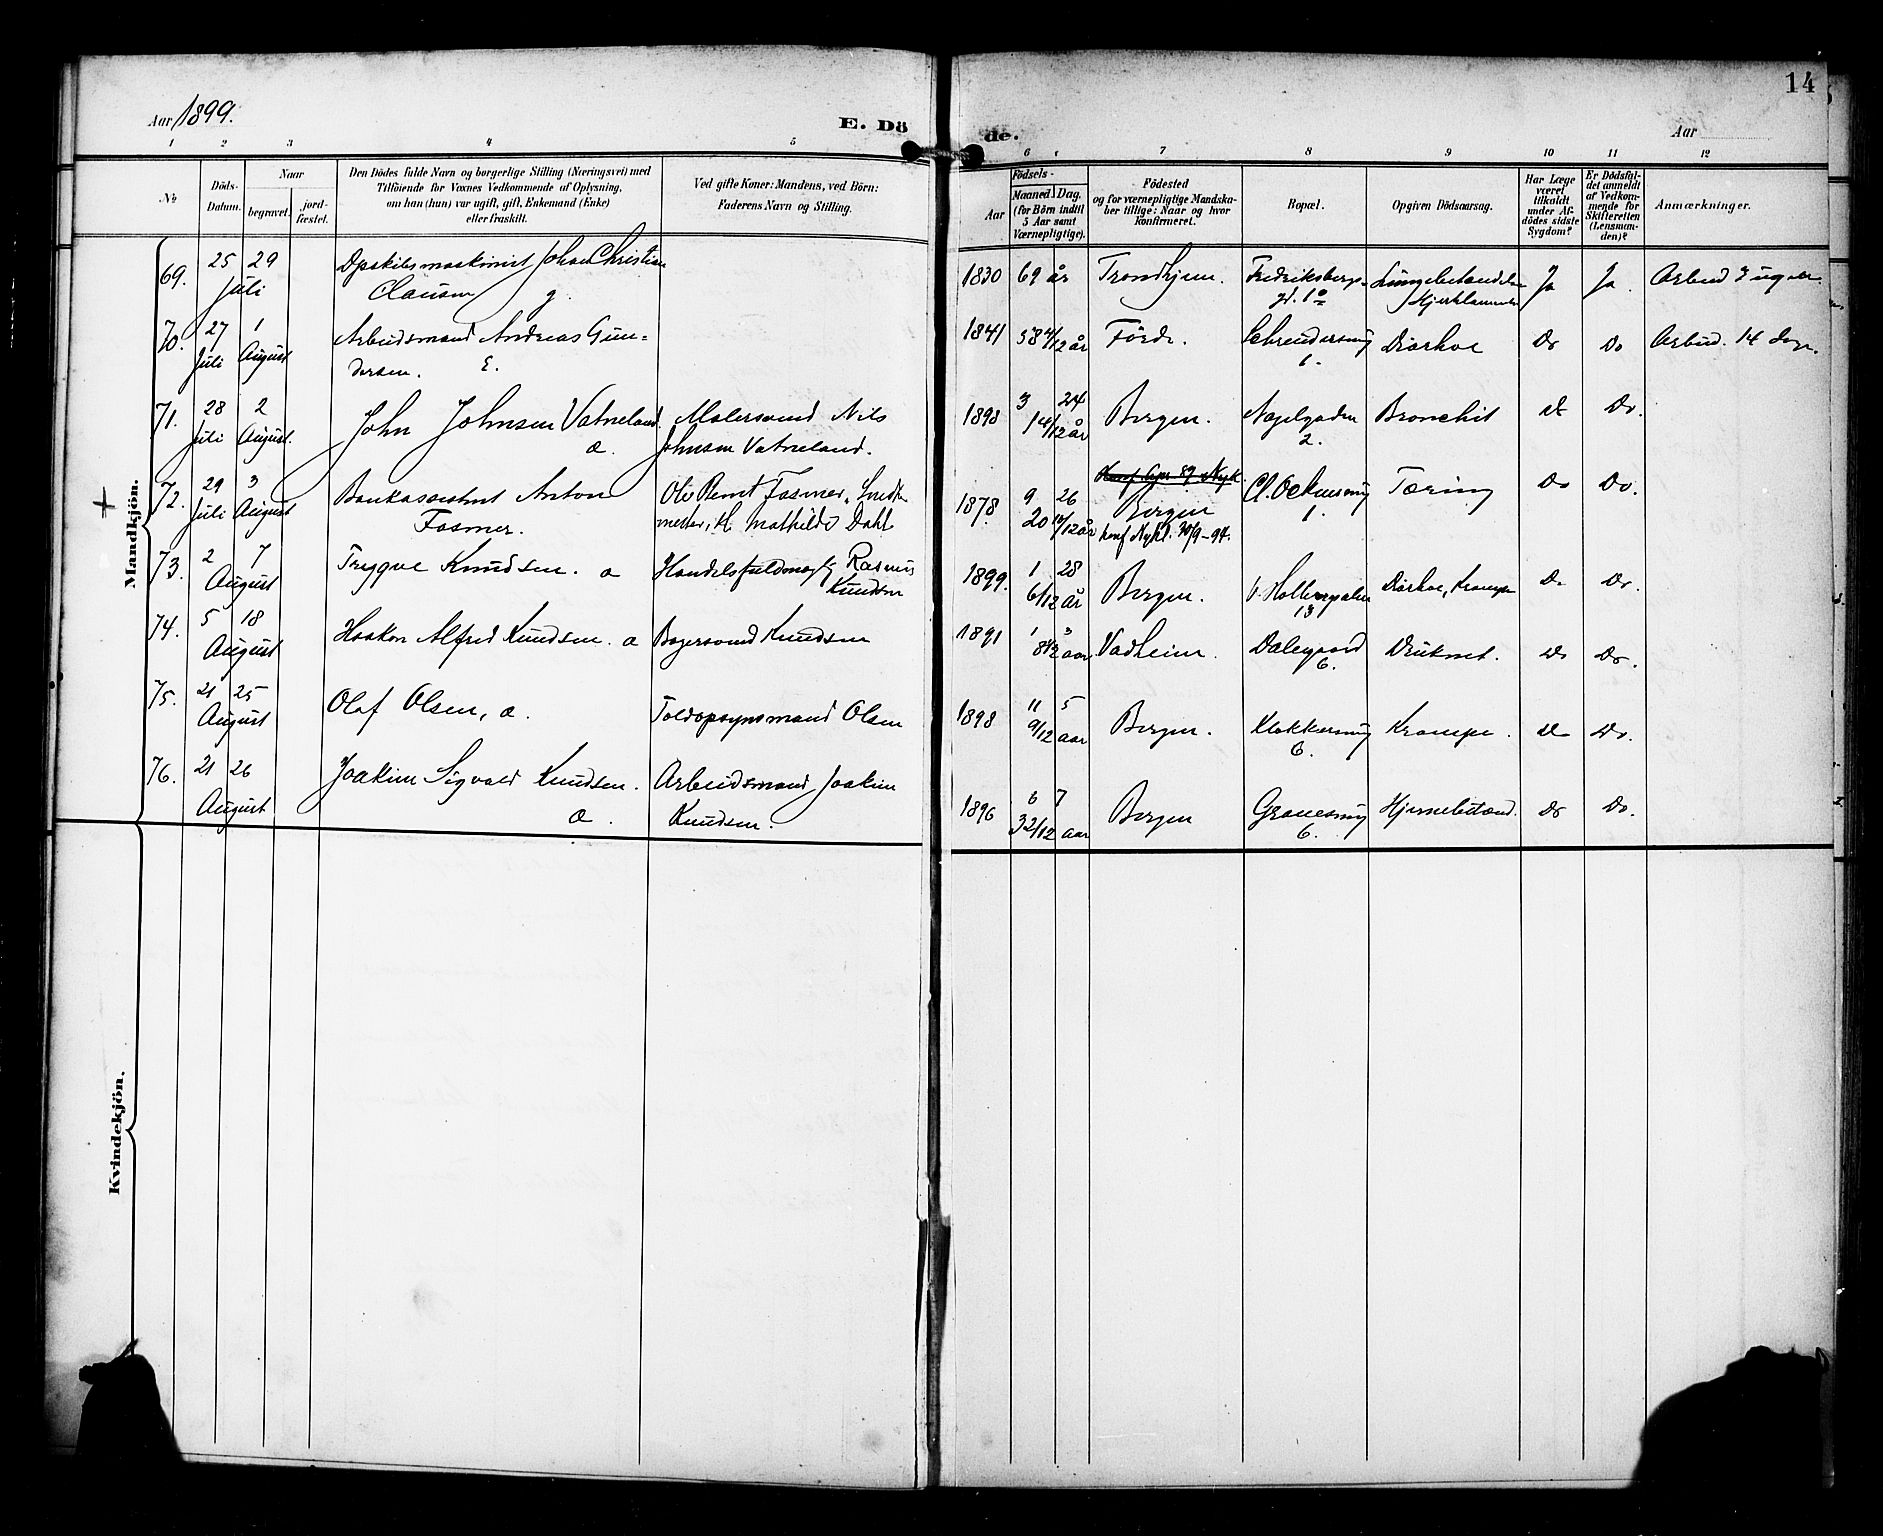 Aar 1899.
E. Dö
de.
Aar
14
1
2
3
4
5
6
7
8
9
10
11
12
No
Döds-
Datum.
Naar
begravet.
jord-
fæstet.
Den Dödes fulde Navn og borgerlige Stilling (Næringsvei) med
Tilföiende for Voxnes Vedkommende af Oplysning,
om han (hun) var ugift, gift, Enkemand (Enke)
eller fraskilt.
Ved gifte Koner: Mandens, ved Börn:
Faderens Navn og Stilling.
Födsels-
Aar
Maaned
Dag.
(for Börn indtil
5 Aar samt
Værnepligtige).
Födested
og for værnepligtige Mandska-
ber tillige: Naar og hvor
konfirmeret.
Bopæl.
Opgiven Dödsaarsag.
Har Læge
været
tilkaldt
under Af-
dödes sidste
Sygdom?
Er Dödsfal-
det anmeldt
af Vedkom-
mende for
Skifteretten
(Lensman-
den)?
Anmærkninger.
Mandkjön.
69.
25 29
Juli
Johan Christian
Clausen g.
1830 69 år
Trondhjem.
Fredriksberg-
Ja
Ja.
70.
27 1
Juli August
Arbeidsmand Andreas Gun-
dersen. E.
1841 58 4/12 år
Förde.
Diarhoe
Do
Do
71.
28 2
Juli August.
John Johnsen Vatneland.
a.
Malersvend Nils
Johnsen Vatneland.
1898 3 24
1 4/12 år
Bergen.
Nøgelgaden
2.
Bronchit
Do.
72.
29 3
Juli August
Bankassistent Anton
Fasmer.
Ole Berent Fasmer, Smed-
mester, H. Mathilde Dahl
1878. 9 26
20 10/12 år
Bergen
konf Nykl. 30/9-94.
Cl. Ockensmug
1.
Tæring
Do
Do.
73.
2 7
August
Trygve Knudsen. a
Handelsfuldmægtig Rasmus
Knudsen
1899. 1 28
6/12 år
Bergen.
13
Diarhoe, Krampe
Do
Do.
74.
5 18
August
Haakon Alfred Knudsen. a
Bagersvend Knudsen
1891 1 3
aar
Vadheim.
Dalegaard
6.
Druknet.
Do
Do.
75.
21 25
August
Olaf Olsen, a.
Toldopsynsmand Olsen
1898 11 5
9/12 aar
Bergen.
Klokkersmug
6.
Krampe.
Do
Do.
76.
21 26
August
Joakim Sigvald Knudsen.
a.
Arbeidsmand Joakim
Knudsen.
1896 6 7
3 2/12 aar
Bergen
Granesmug
6.
Hjernebetænd.
Do
Do.
Kvindekjön.